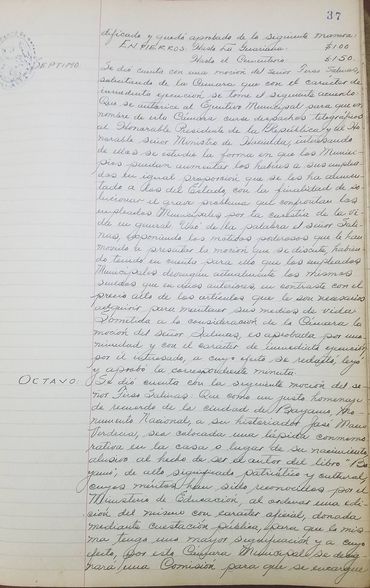 37
dificado y quedó aprobado de la siguiente manera:
ENTIERROS: Hasta La Guariana $1.00
Hasta el Cementerio $1.50.
SEPTIMO
Se dió cuenta con una moción del señor Tirso Salinas,
solicitando de la Cámara que con el carácter de
inmediata ejecución se tome el siguiente acuerdo:
Que se autorice al Ejecutivo Municipal para que en
nombre de esta Cámara curse despachos telegráficos
al Honorable Presidente de la República y al Ho-
norable señor Ministro de Hacienda, interesando
de ellos se estudie la forma en que los Munici-
pios puedan aumentar los haberes a sus emplea-
dos en igual proporción que se les ha aumen-
tado a los del Estado, con la finalidad de so-
lucionar el grave problema que confrontan los
empleados Municipales por la carestía de la vi-
da en general. Usó de la palabra el señor Sali-
nas, exponiendo los motivos poderosos que lo han
movido a presentar la moción que se discute, habien-
do tenido en cuenta para ello que los empleados
Municipales devengan actualmente los mismos
sueldos que en años anteriores, en contraste con el
precio alto de los artículos que le son necesarios
adquirir para mantener sus medios de vida.
Sometida a la consideración de la Cámara la
moción del señor Salinas, es aprobada por una-
nimidad y con el carácter de inmediata ejecución
por él interesado, a cuyo efecto se redactó, leyó
y aprobó la correspondiente minuta.
OCTAVO
Se dió cuenta con la siguiente moción del se-
ñor Tirso Salinas: Que como un justo homenaje
de recuerdo de la ciudad de Bayamo, Mo-
numento Nacional, a su historiador José Maceo
Verdecia, sea colocada una lápida conmemo-
rativa en la casa o lugar de su nacimiento,
alusiva al hecho de ser el autor del libro "Ba-
yamo", de alto significado patriótico y cultural,
cuyos méritos han sido reconocidos por el
Ministerio de Educación, al ordenar una edi-
ción del mismo con carácter oficial, donada
mediante cuestación pública, para que la mis-
ma tenga una mayor significación y a cuyo
efecto, por esta Cámara Municipal se desig-
nará una Comisión para que se encargue